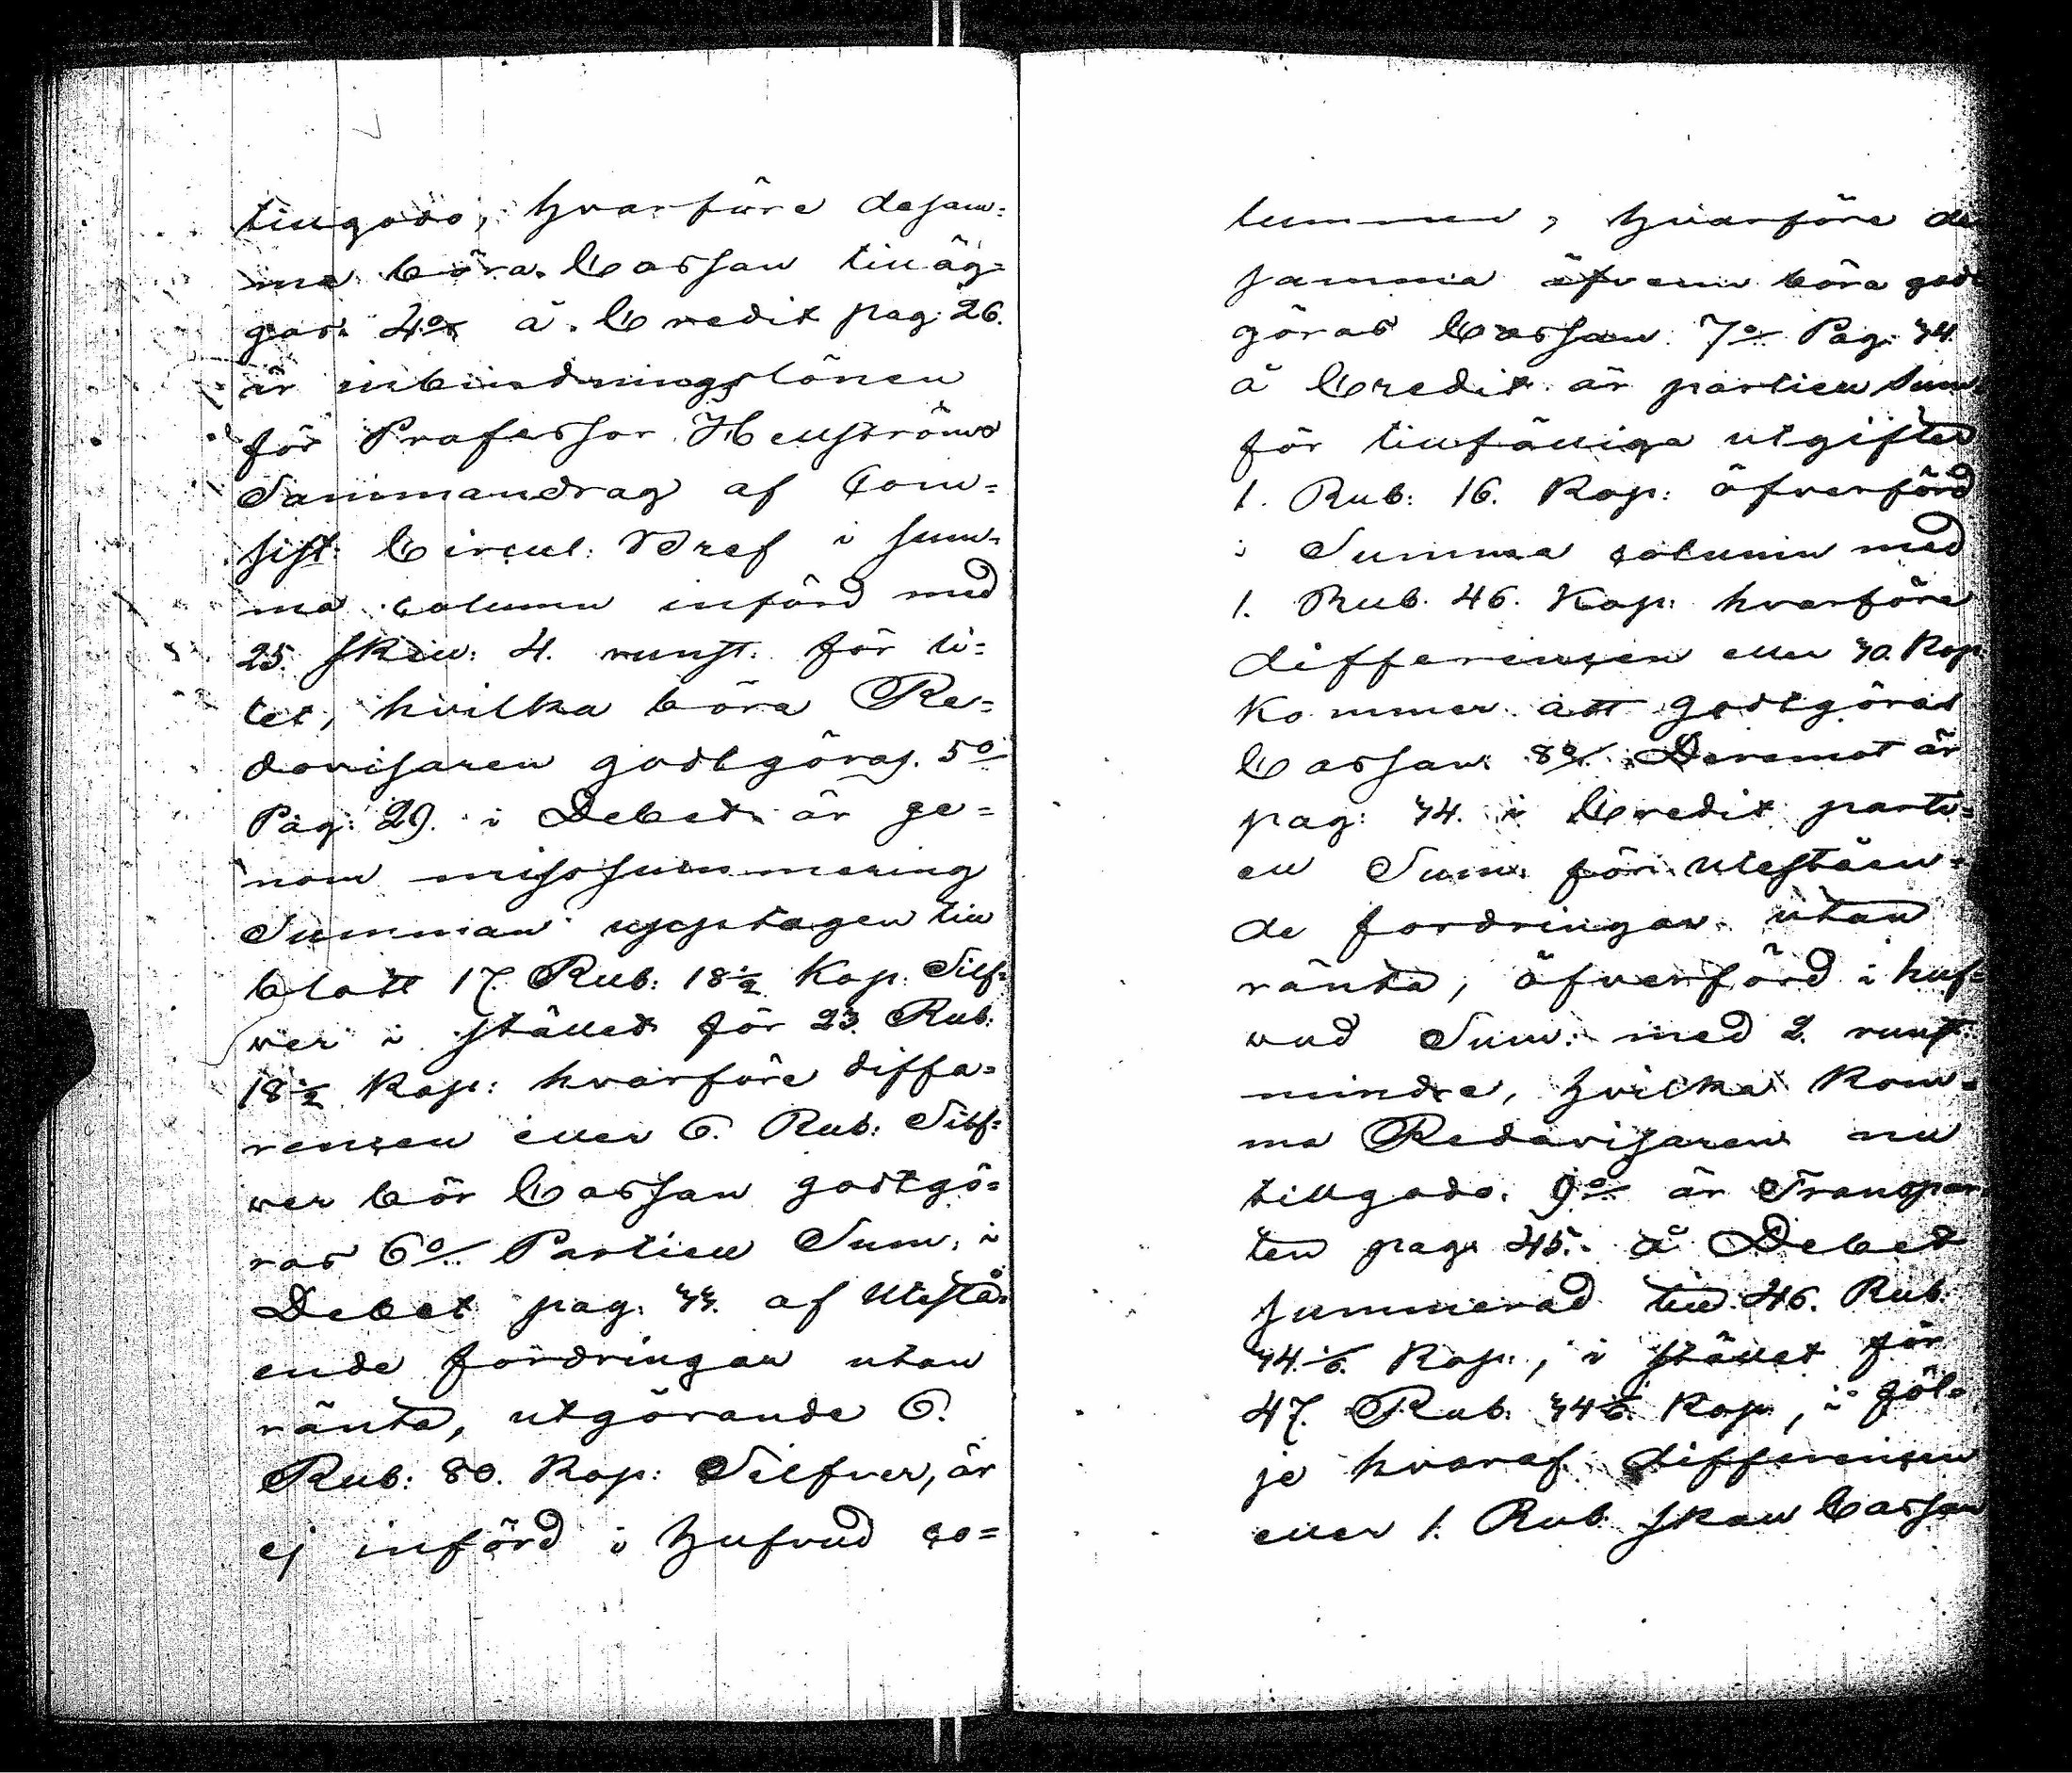 tillgodo, hvarföre desam=
ma böra Cassan tilläg=
gas. 4:o å Credit pag: 26.
är inbindningslönen
för Professor Hellströms
Sammandrag af Con=
sist: Circul: Bref i sum=
ma column införd med
25. skill: 4. runst: för li=
tet, hvilka böra Re=
dovisaren godtgöras. 5:o
Pag: 29. i Debet är ge=
nom missummering
Summan upptagen till
blott 17. Rub: 18 1/2 Kop: Silf=
ver i stället för 23. Rub:
18 1/2 Kop: hvarföre diffe=
rencen eller 6. Rub: Silf=
ver bör Cassan godtgö=
ras 6:o Partiell Sum, i
Debet pag: 33. af Utestå=
ende fordringar utan
ränta, utgörande 6.
Rub: 80. Kop: Silfver, är
ej införd i hufvud co=
lumnen, hvarföre de
samma äfven böra godt
göras Cassan. 7:o Pag: 34.
å Credit är partiell Sum
för tillfälliga utgifter
1. Rub: 16. Kop: öfverförd
i Summa column med
1. Rub. 46. Kop: hvarföre
differencen eller 30. Kop:
kommer att godtgöras
Cassan. 8:o Deremot är
pag: 34. i Credit parti=
ell Sum: för utestäen=
de fordringar utan
ränta, öfverförd i huf=
vud Sum: med 2. runst:
mindre, hvilka kom=
ma Redovisaren nu
tillgodo. 9:o är Transpor
ten pag: 45. å Debet
summerad till 46. Rub.
34. 1/6. Kop:, i stället för
47. Rub. 34 1/6. Kop:, i föl=
je hvaraf differencen
eller 1. Rub. skall Cassan